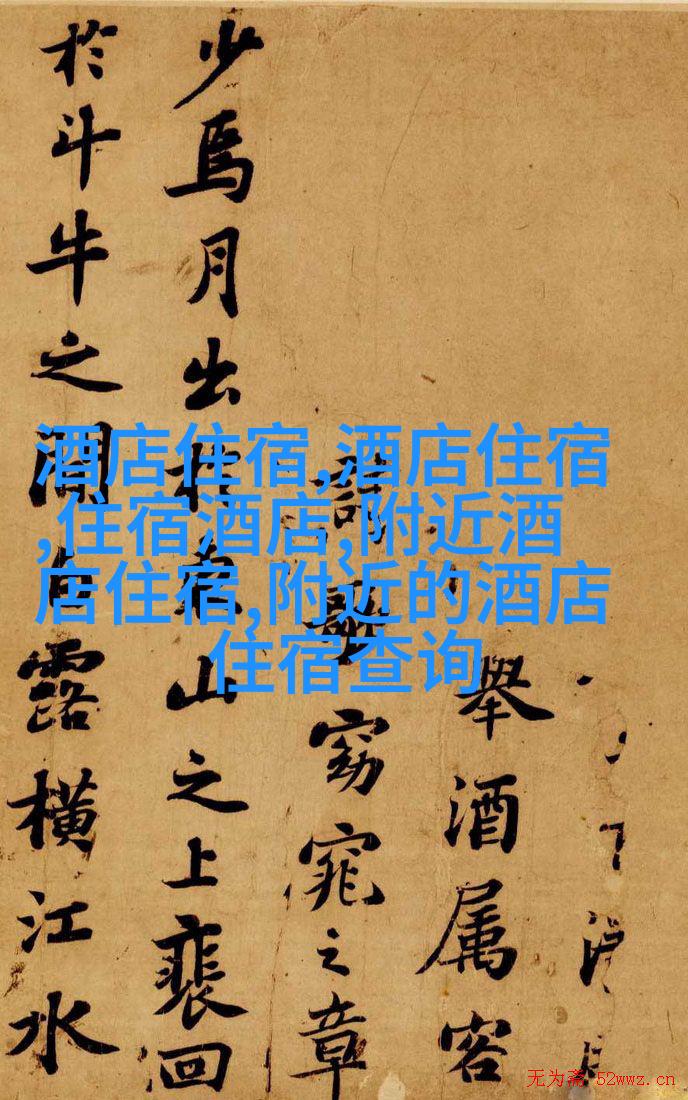 酒店住宿,酒店住宿
,住宿酒店,附近酒
店住宿,附近的酒店
住宿查询
舉酒属客
詩歌窈窕之章
少焉月出於東山之上裵回
於斗牛之間白露橫江水
无为斋 52wwz.cn